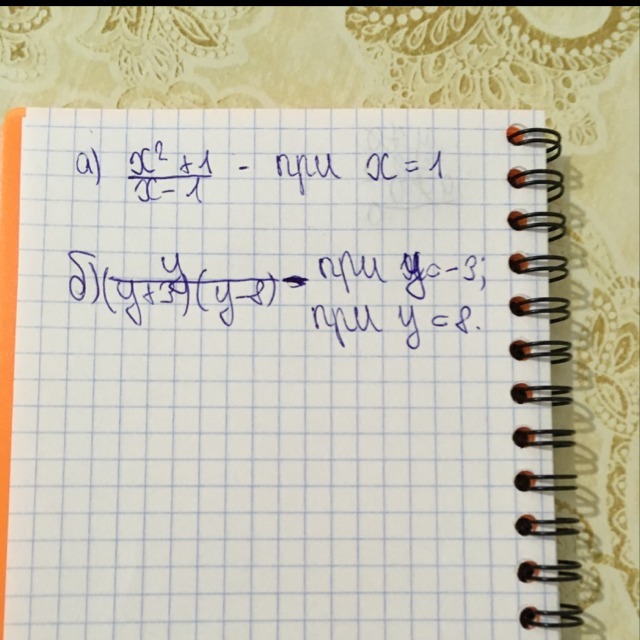 а) x² + 1 / x - 1 - при x = 1
б) y / (y+3)(y-8) - при y = -3;
при y = 8.